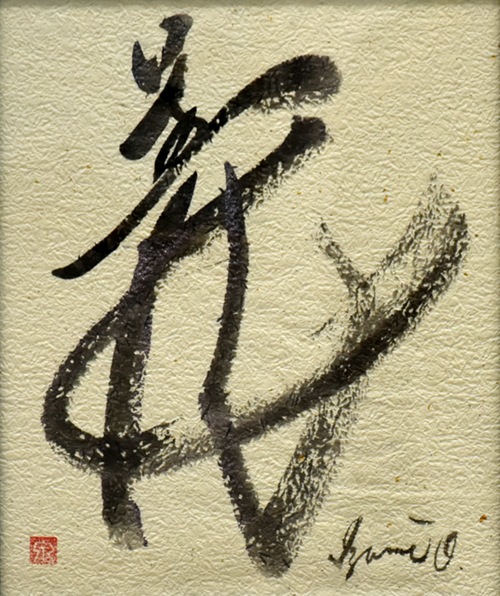 義
Izumi O.